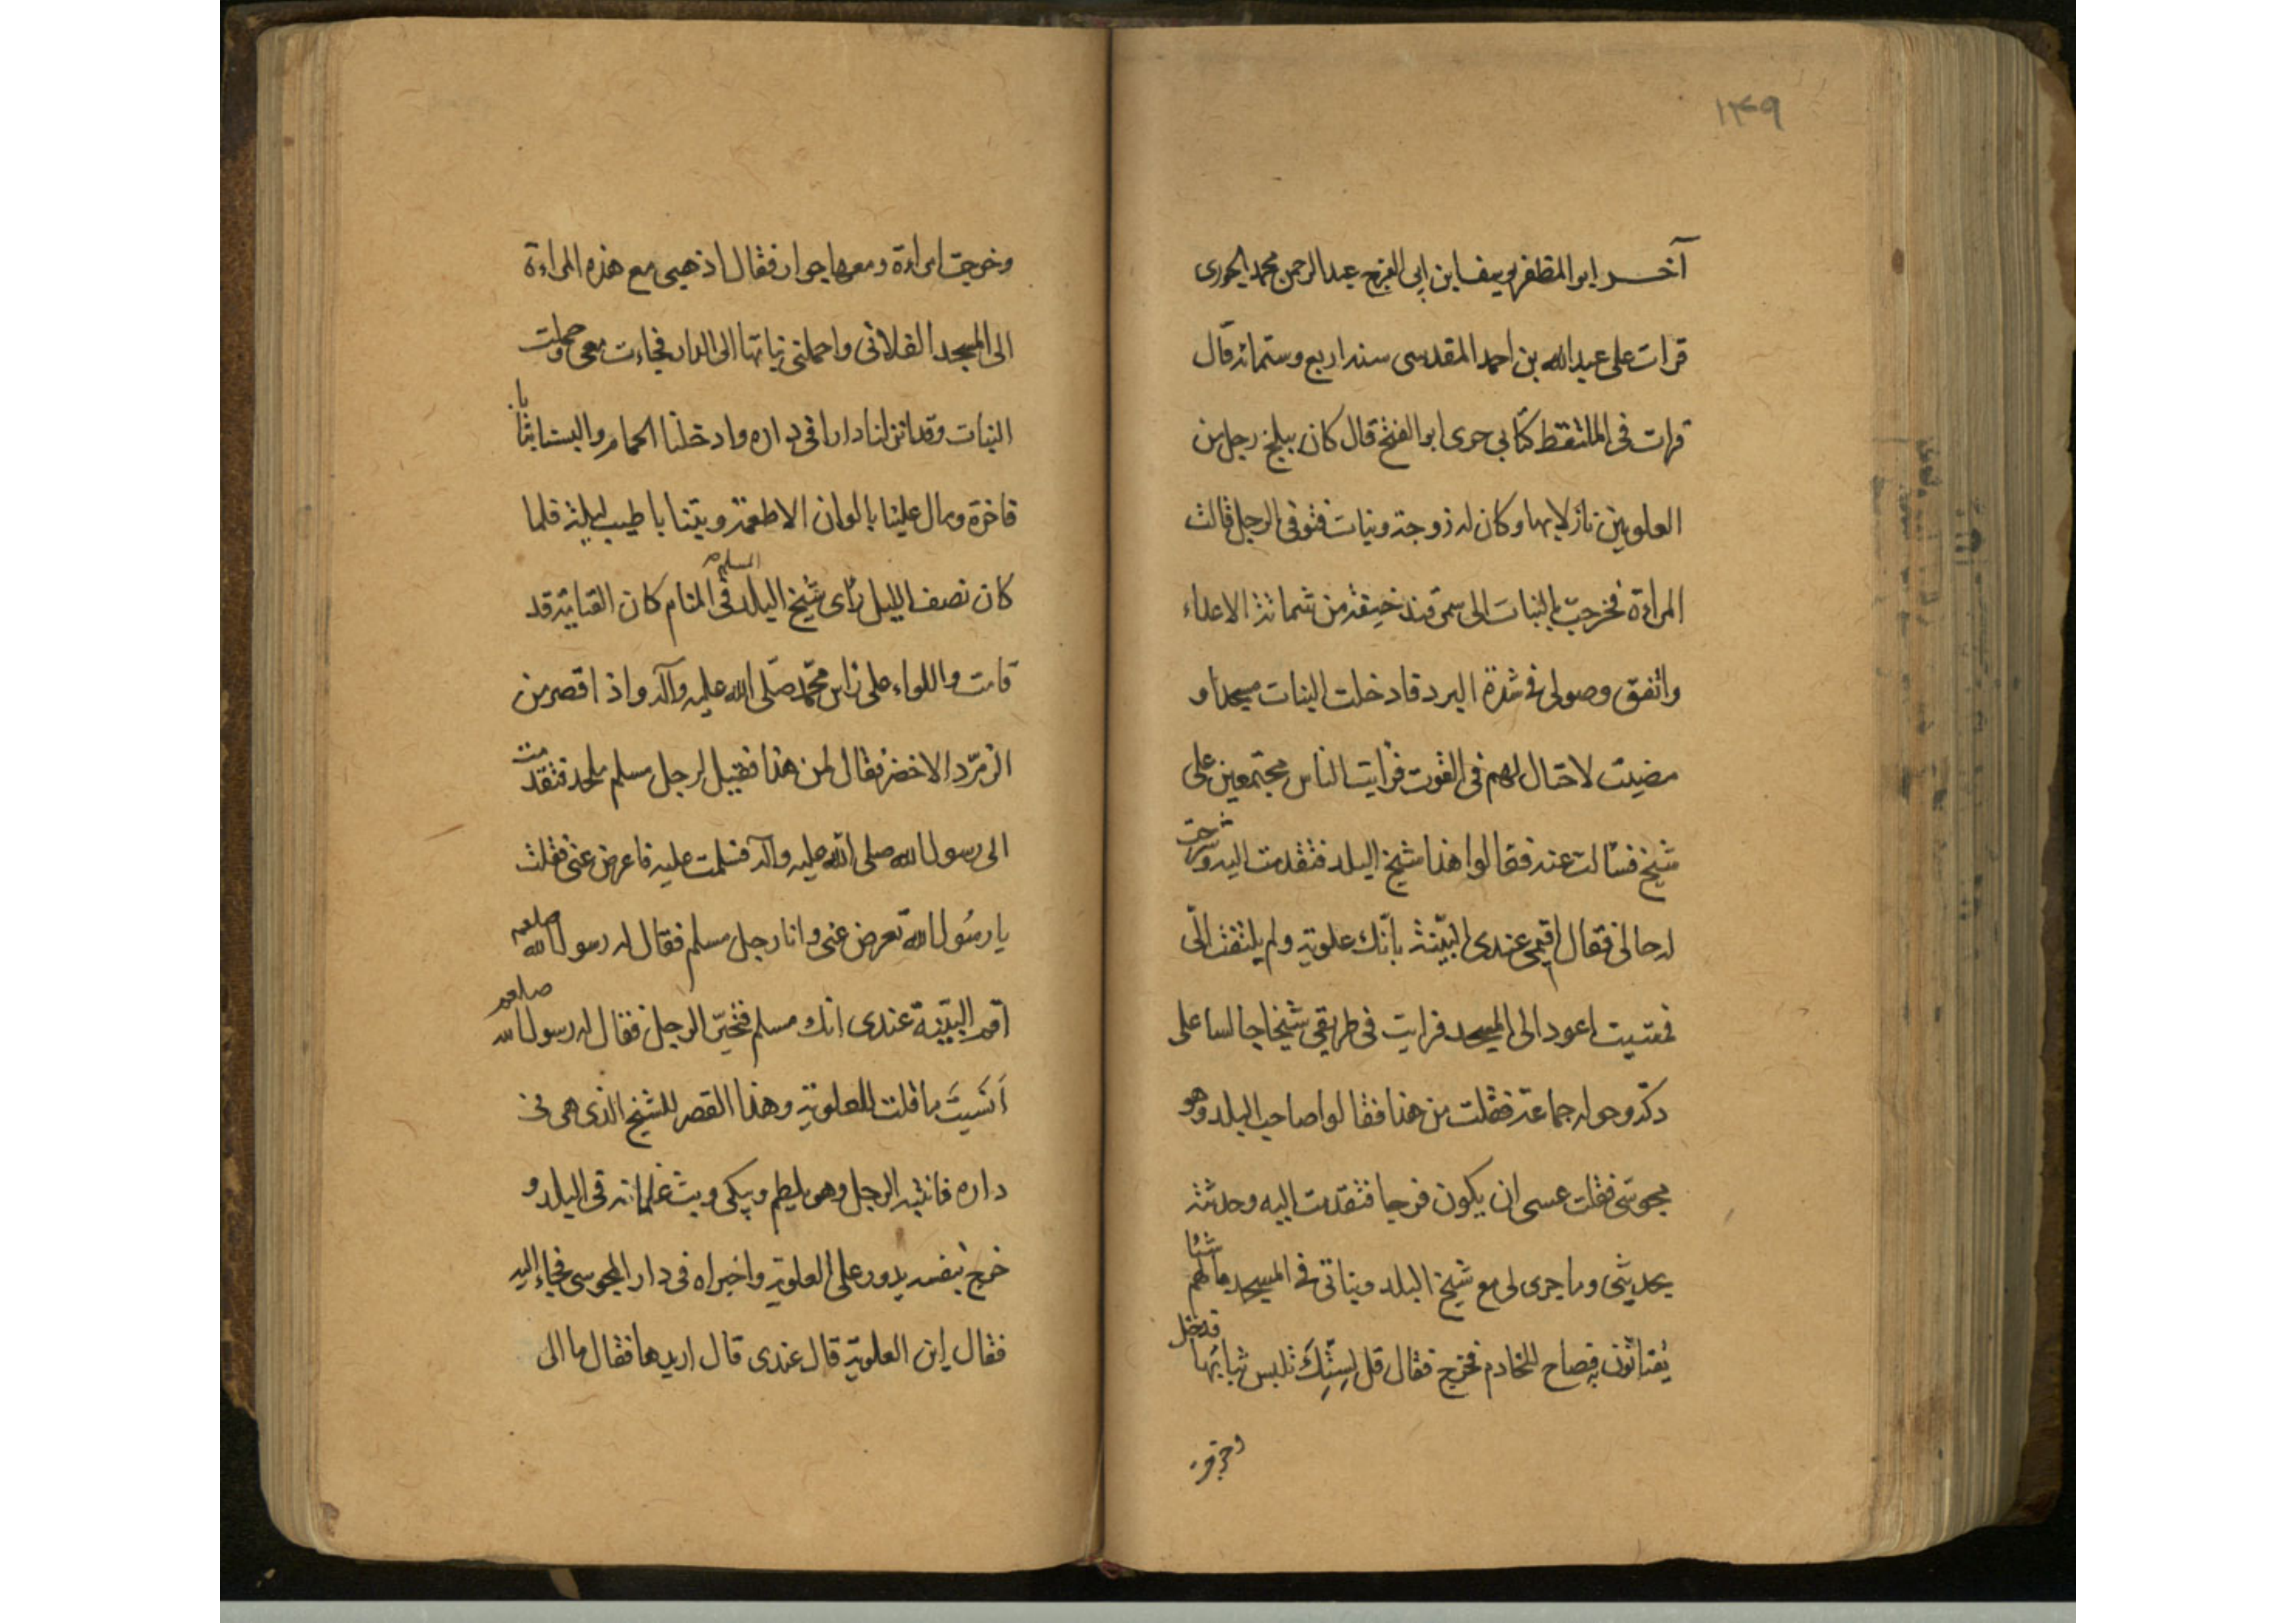 ۱۴۹
آخر ابو المظفر يوسف ابن ابي الفرج عبد الرحمن محمد الجوزى
قرات على عبد الله بن احمد المقدسى سنه اربع وستمائه قال
قرات فى الملتقط كتابى جدى ابو الفتح قال كان ببلخ رجل من
العلويين نازلا بها وكان له زوجة وبنات فتوفى الرجل قالت
المراءة فخرجت بالبنات الى سمرقند خيفة من شماتة الاعداء
واتفق وصولى فى شدة البرد فادخلت البنات مسجدا و
مضيت لاحتال لهم فى القوت فرايت الناس مجتمعين على
شيخ فسالت عنه فقالوا هذا شيخ البلد فتقدمت اليه وشرحت
له حالى فقال اقيمى عندى البيّنة بانّك علوية ولم يلتفت الىّ
فمشيت اعود الى المسجد فرايت فى طريقى شيخا جالسا على
دكة وحوله جماعة فقلت من هذا فقالوا صاحب البلد وهو
مجوسى فقلت عسى ان يكون فرجا فتقدمت اليه وحدثته
بحديثى وما جرى لى مع شيخ البلد وبناتى فى المسجد مالهم شيئا
يقتاتون به فصاح للخادم فخرج فقال قل لستك تلبس ثيابها فدخل
وخرجت
وخرجت امراءة ومعها جوار فقال اذهبى مع هذه المراءة
الى المسجد الفلانى واحملى بناتها الى الدار فجاءت معى وحملت
البنات وقد انزلنا دارا فى داره وادخلنا الحمام والبسنا ثيابا
فاخرة ومال علينا بالوان الاطعمة وبتنا باطيب ليلة فلما
كان نصف الليل رأى شيخ البلد المسلم فى المنام كان القيامة قد
قامت واللواء على راس محمّد صلّى الله عليه وآله واذا قصر من
الزمرّد الاخضر فقال لمن هذا فقيل لرجل مسلم ملحد فتقدمت
الى رسول الله صلى الله عليه وآله فسلمت عليه فاعرض عنى فقلت
يا رسُول الله تعرض عنى وانا رجل مسلم فقال له رسول الله صلعم
اقم البيّنة عندى انك مسلم فتحيّر الرجل فقال له رسول الله صلعم
اَنَسيتَ ما قلت للعلوية وهذا القصر للشيخ الذى هى فى
داره فانتبه الرجل وهو يلطم ويبكى وبث غلمانه فى البلد و
خرج بنفسه يدور على العلوية واخبراه فى دار المجوسى فجاء اليه
فقال اين العلوية قال عندى قال اريدها فقال ما الى